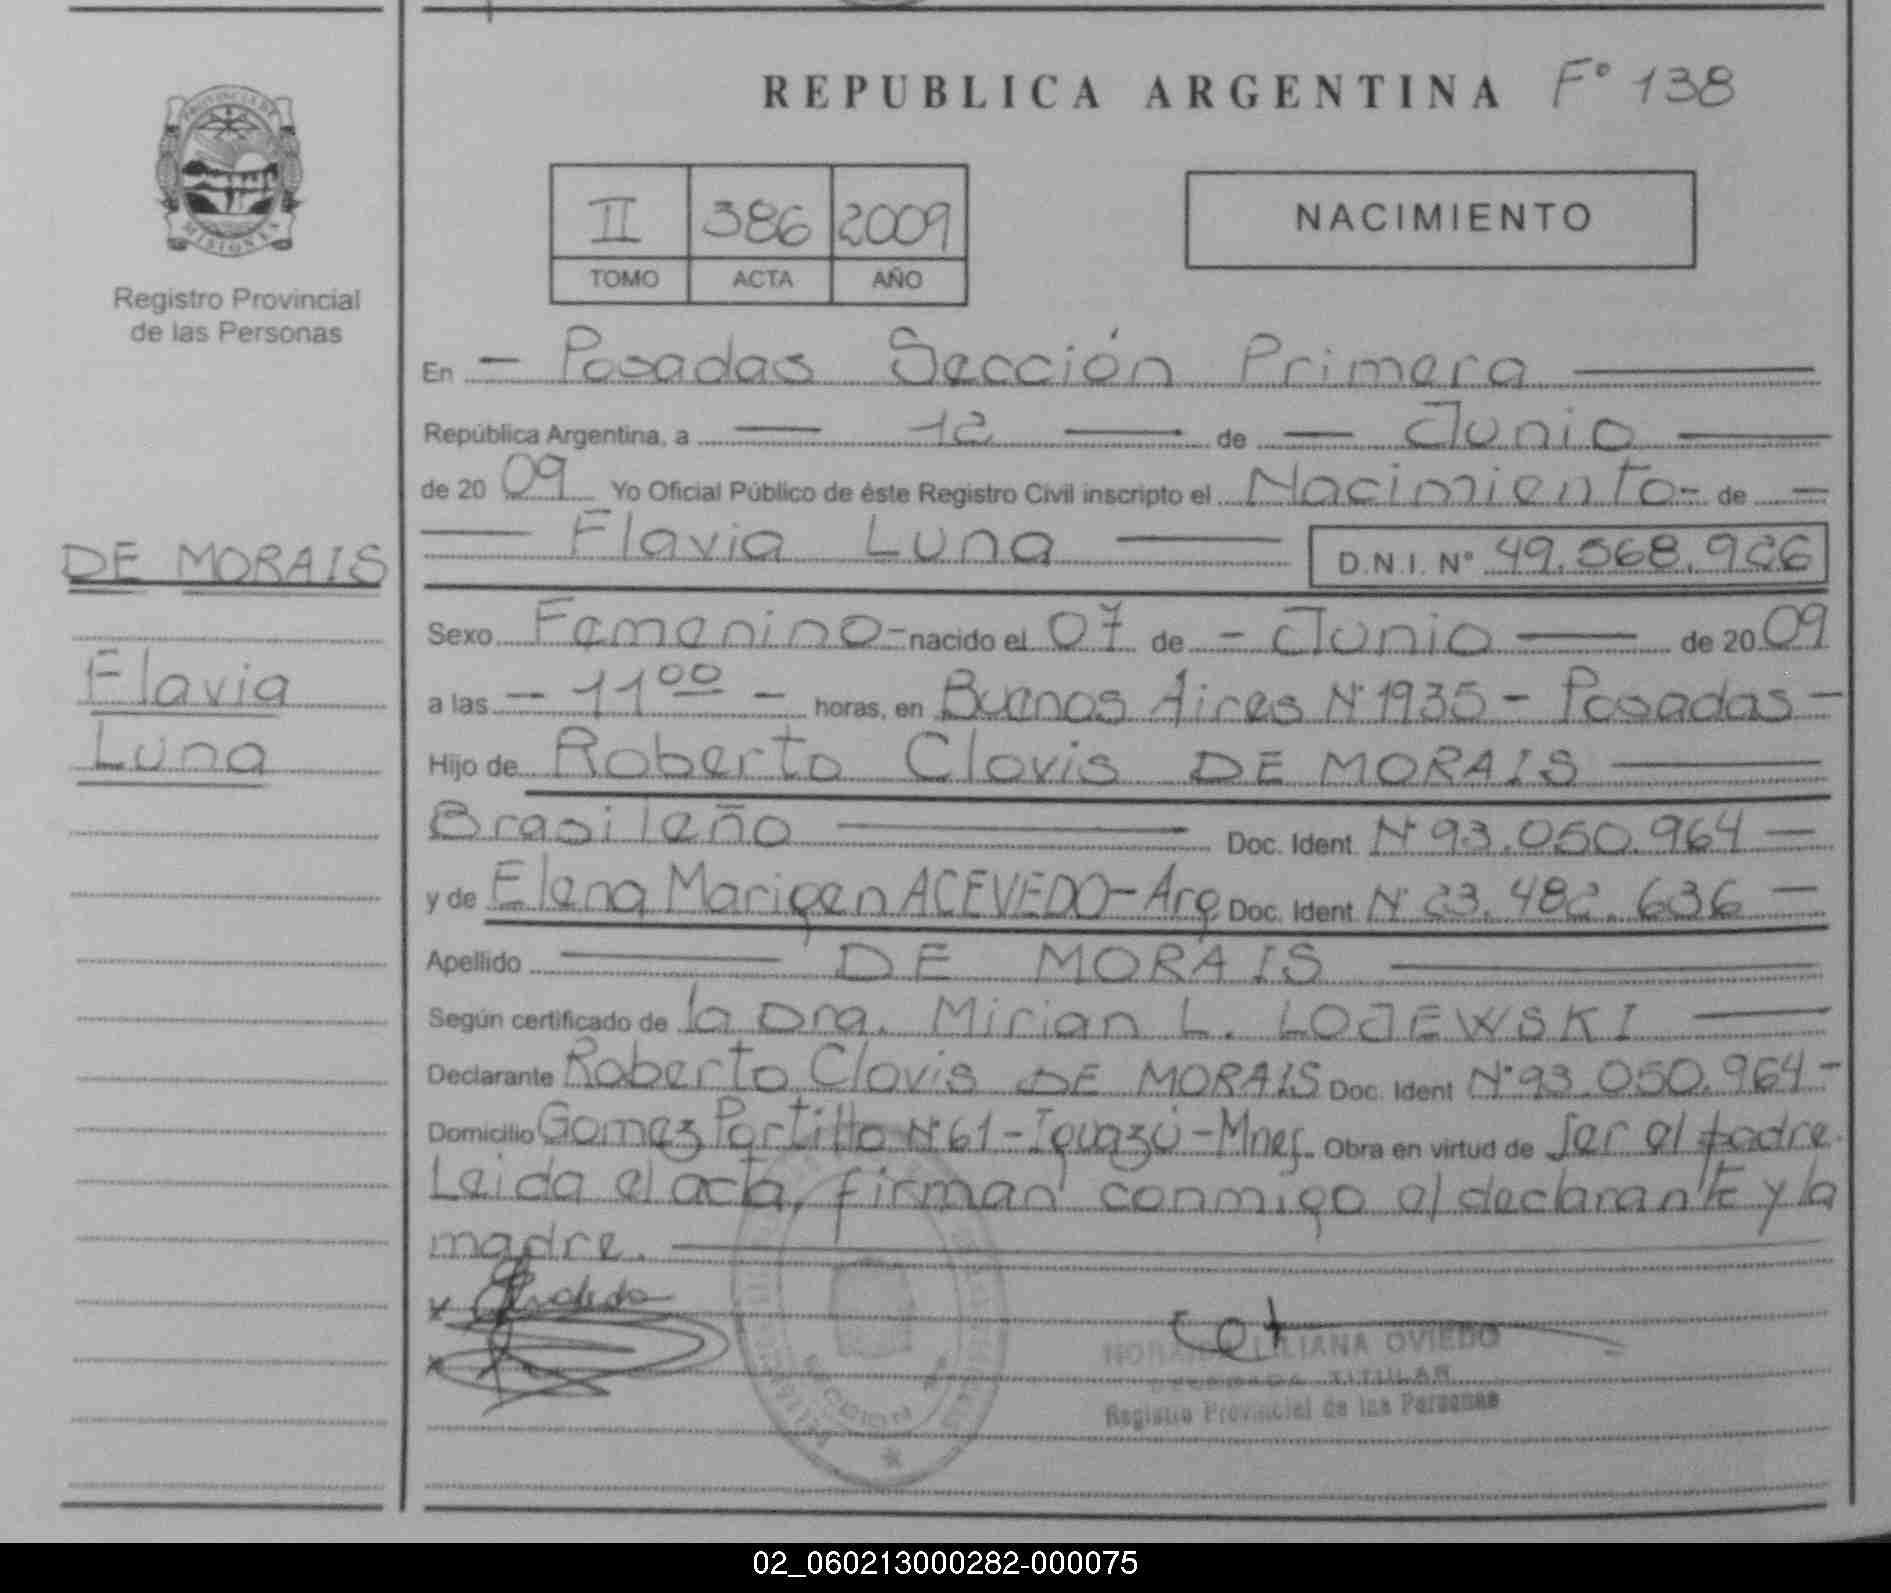 REPUBLICA ARGENTINA F° 138
PROVINCIA DE
MISIONES
Registro Provincial
de las Personas
II 386 2009
TOMO ACTA AÑO
NACIMIENTO
En — Posadas Sección Primera —
República Argentina, a — 12 — de — Junio —
de 2009 Yo Oficial Público de éste Registro Civil inscripto el Nacimiento - de —
— Flavia Luna — D.N.I. N° 49.568.926
DE MORAIS
Flavia
Luna
Sexo Femenino - nacido el 07 de - Junio — de 2009
a las - 11 00 - horas, en Buenos Aires N° 1935 - Posadas -
Hijo de Roberto Clovis DE MORAIS —
Brasileño — Doc. Ident N° 93.050.964 —
y de Elena Marigen ACEVEDO - Arg. Doc. Ident N° 23.482.636 —
Apellido — DE MORAIS —
Según certificado de la Dra. Mirian L. LOJEWSKI —
Declarante Roberto Clovis DE MORAIS Doc. Ident N° 93.050.964 -
Domicilio Gomez Portillo N° 61 - Iguazú - Mnes. Obra en virtud de ser el padre.
Leida el acta, firman conmigo el declarante y la
madre. —
LILIANA OVIEDO
TITULAR
Registro Provincial de las Personas
02_060213000282-000075